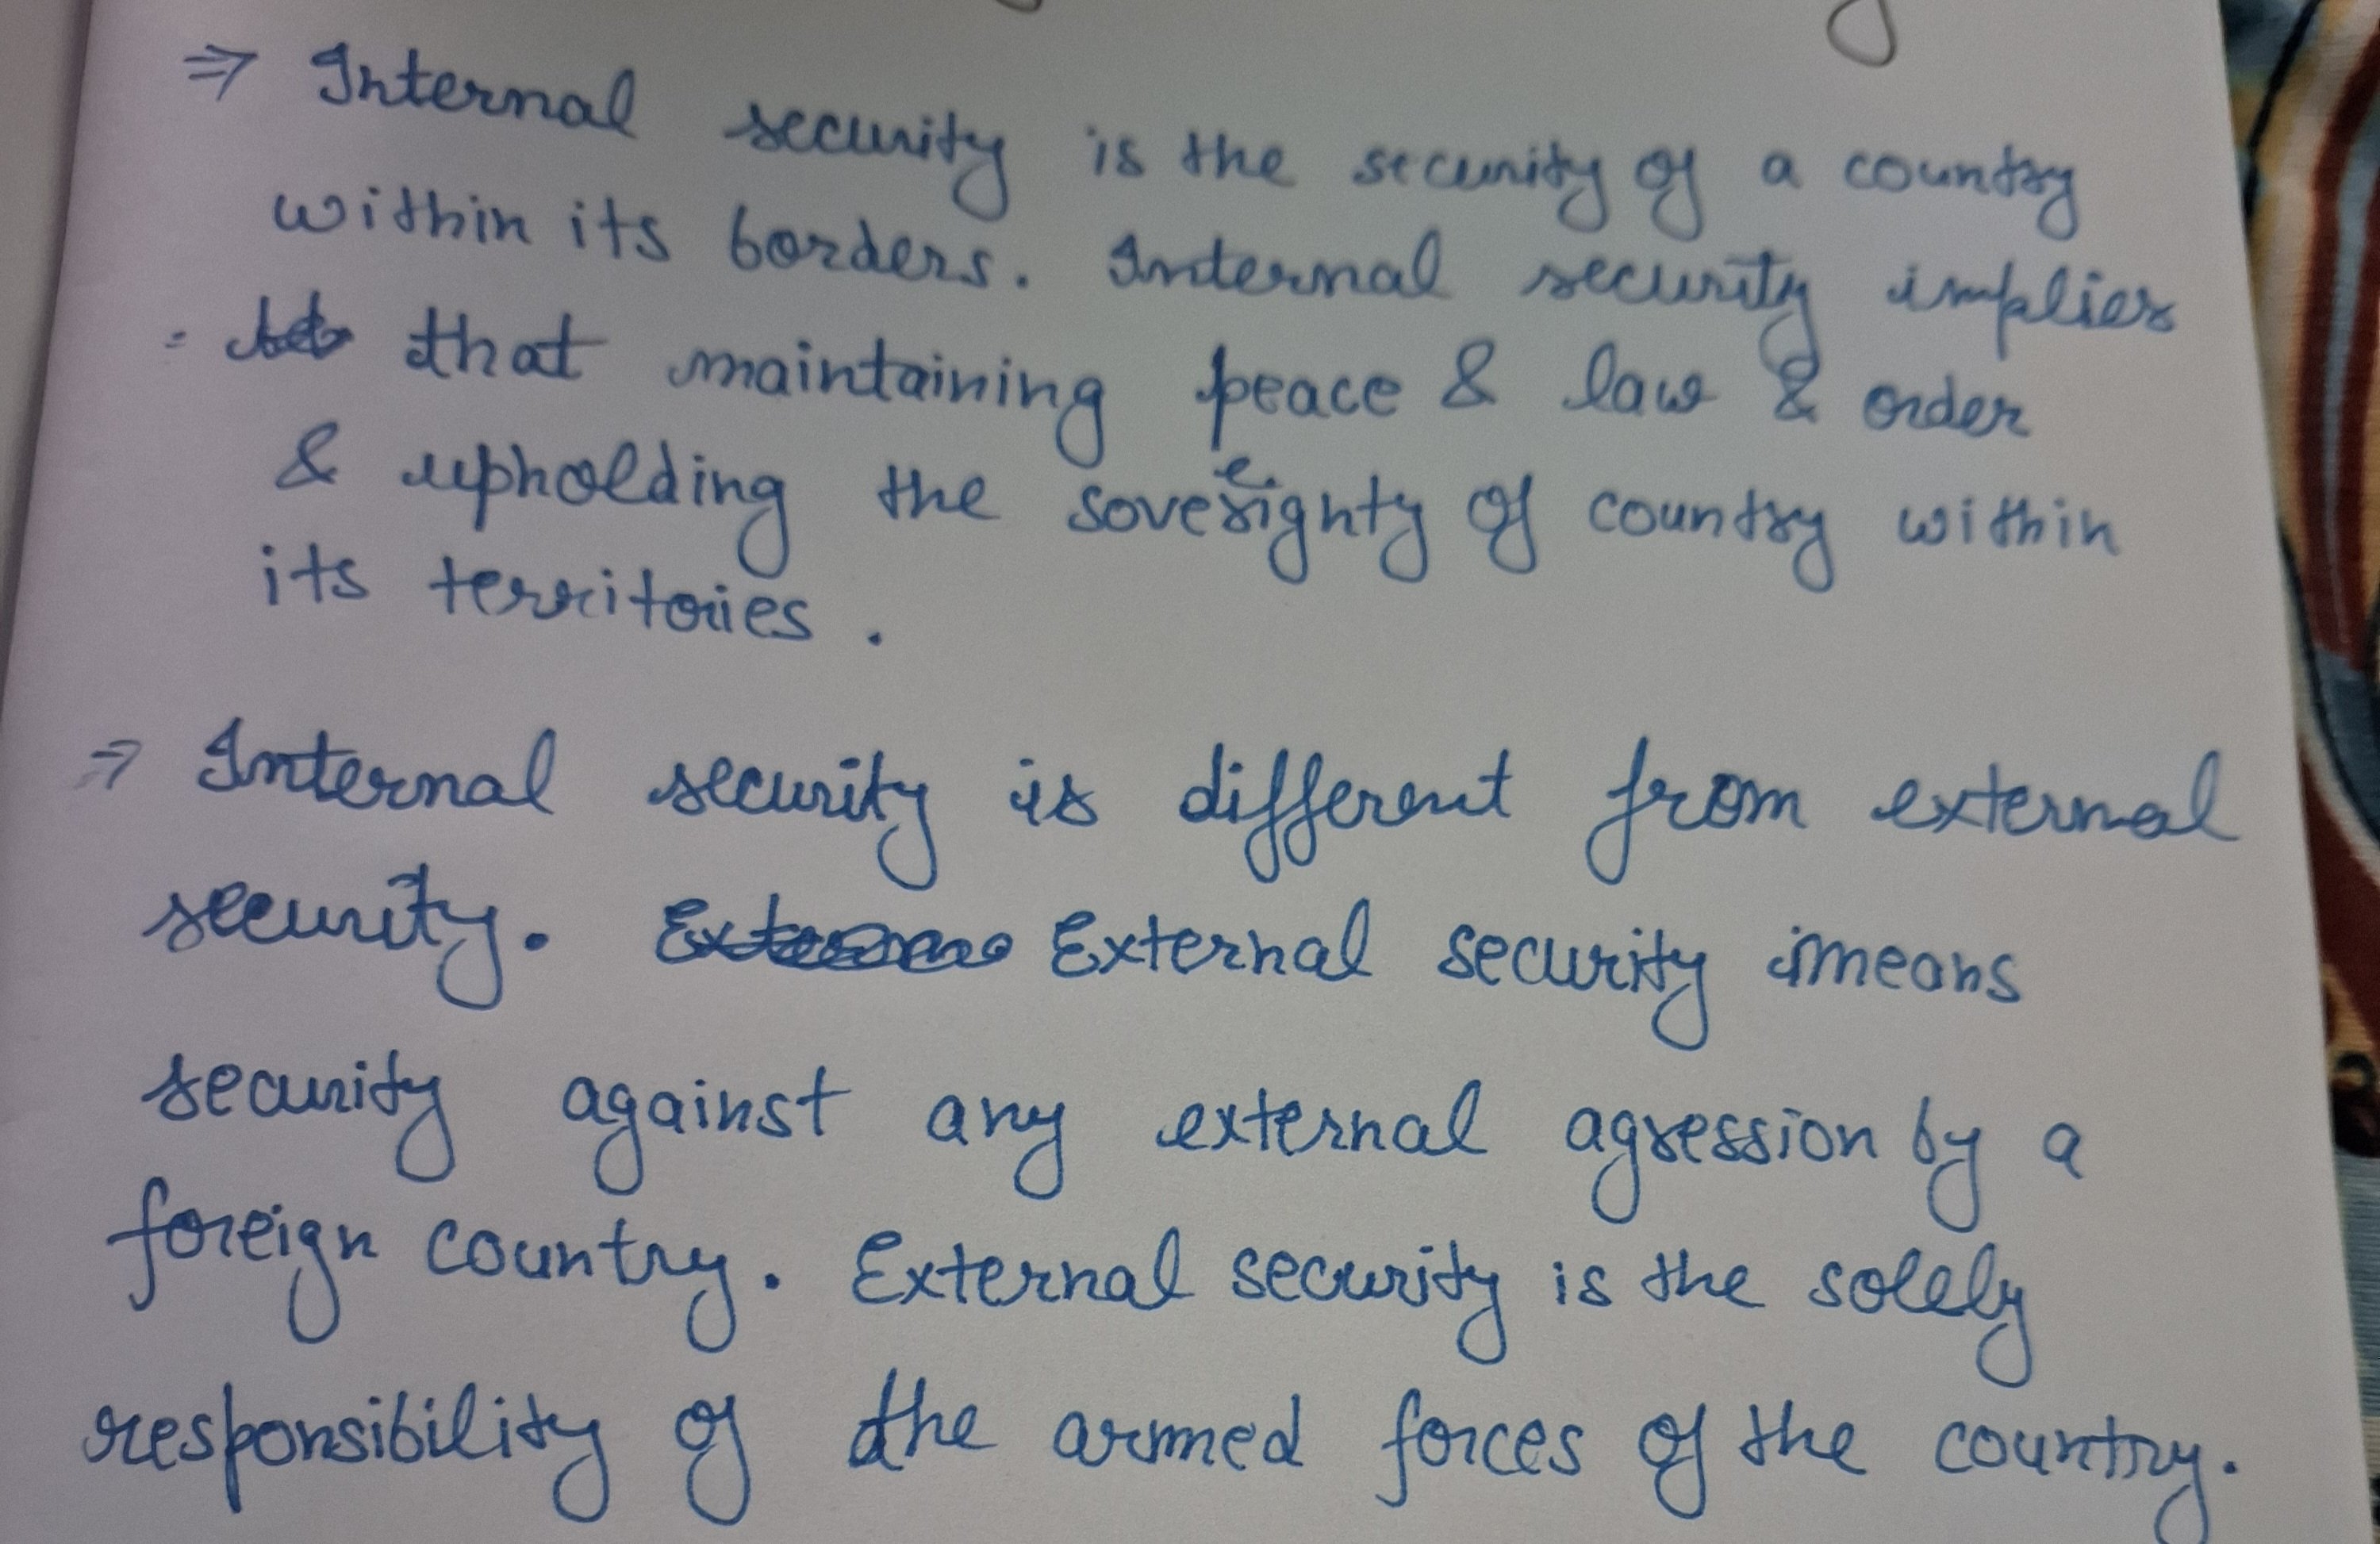 ⇒ Internal security is the security of a country
within its borders. Internal security implies
that maintaining peace & law & order
& upholding the sovereighty of country within
its territories.
⇒ Internal security is different from external
security. External security means
security against any external agression by a
foreign country. External security is the solely
responsibility of the armed forces of the country.